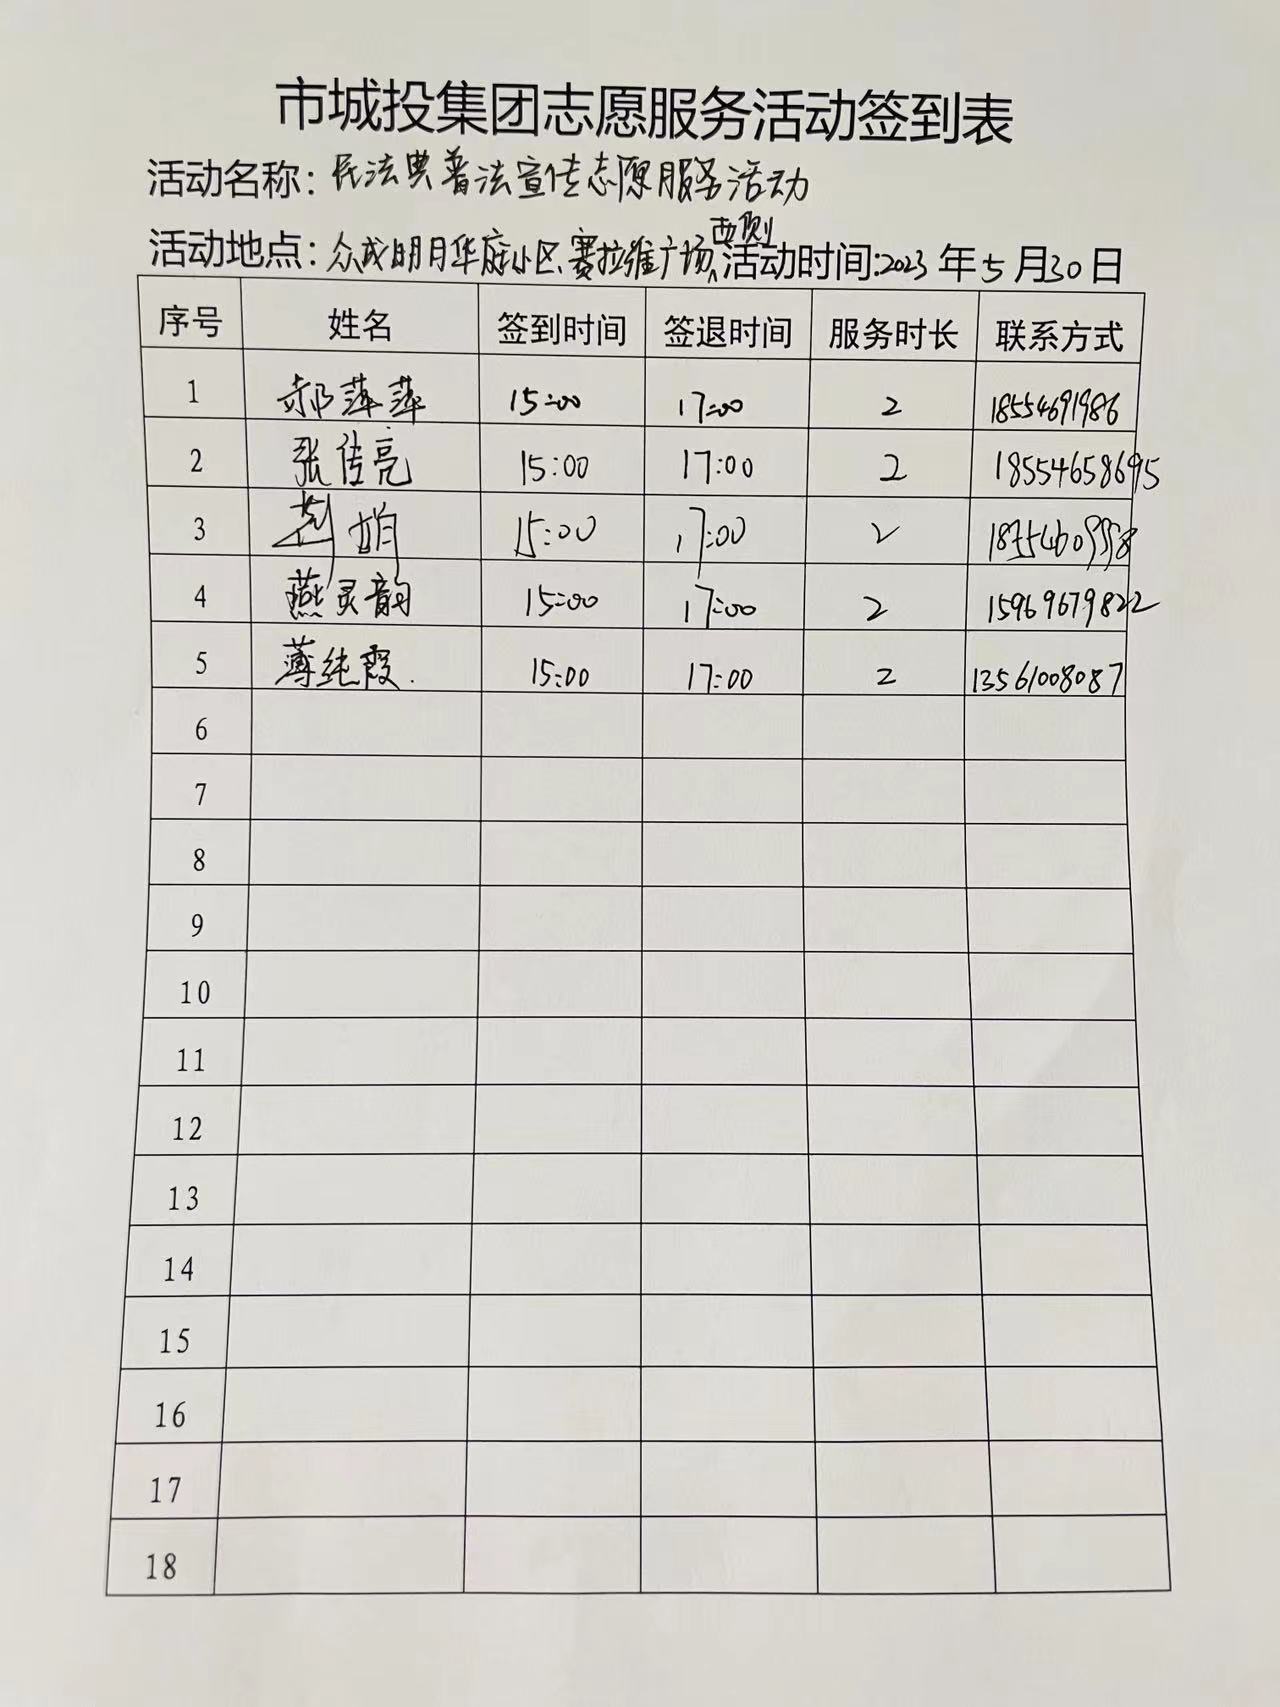 市城投集团志愿服务活动签到表
活动名称：民法典普法宣传志愿服务活动
活动地点：众成明月华庭小区、赛拉维广场西侧 活动时间:2023年5月30日
序号 姓名 签到时间 签退时间 服务时长 联系方式
1 郝萍萍 15:00 17:00 2 18554691986
2 张佳亮 15:00 17:00 2 18554658695
3 赵娟 15:00 17:00 2
4 燕灵韵 15:00 17:00 2 15969679822
5 薄纯霞. 15:00 17:00 2 13561008087
6
7
8
9
10
11
12
13
14
15
16
17
18